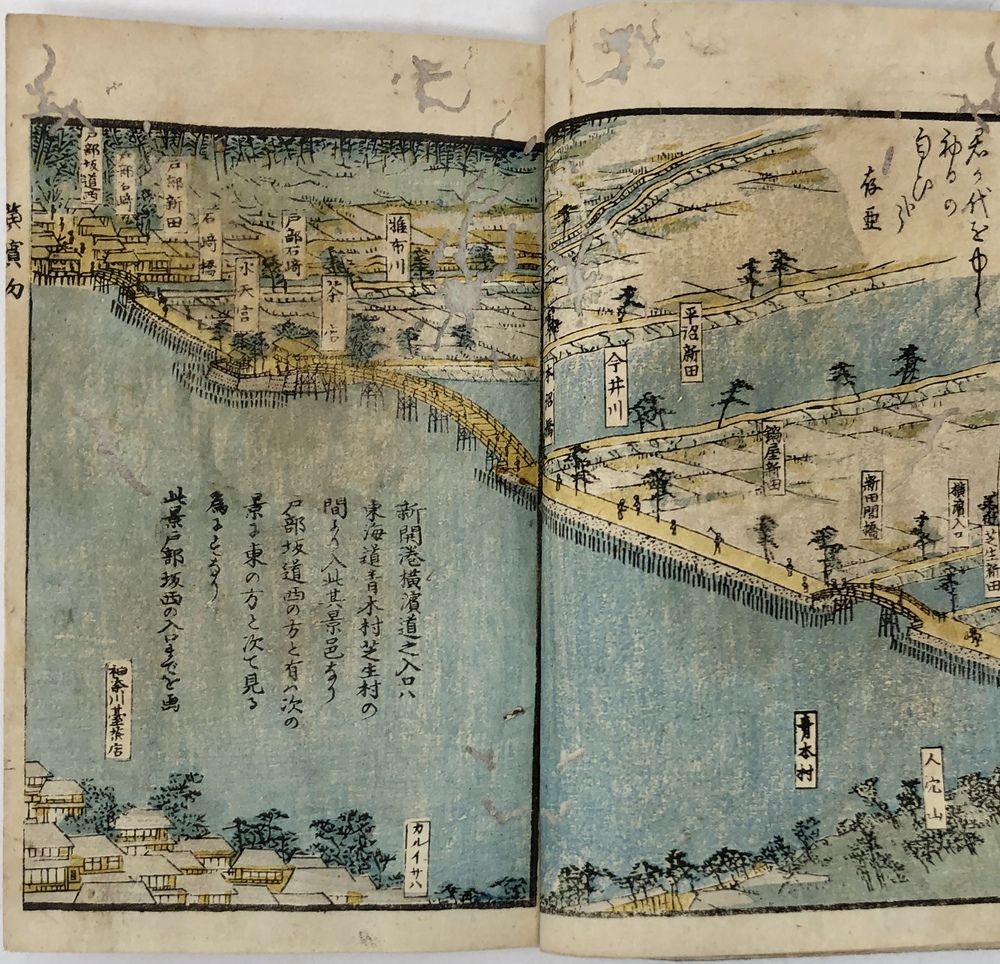 君か代を
神日の
存亜
平沼新田
今井川
鍋屋新田
新田間橋
横濱入口
芝生新田
青木村
人穴山
戸部坂道西
戸部石崎
戸部新田
石崎橋
水天宮
戸部石崎
茶店
雅布川
新開港横濱道之入口ハ
東海道青木村芝生村の
間より入此其景邑なり
戸部坂道西の方と有ハ次の
景は東の方と次て見る
為にをなり
此景戸部坂西の入口までを画
神奈川臺茶店
カルイサハ